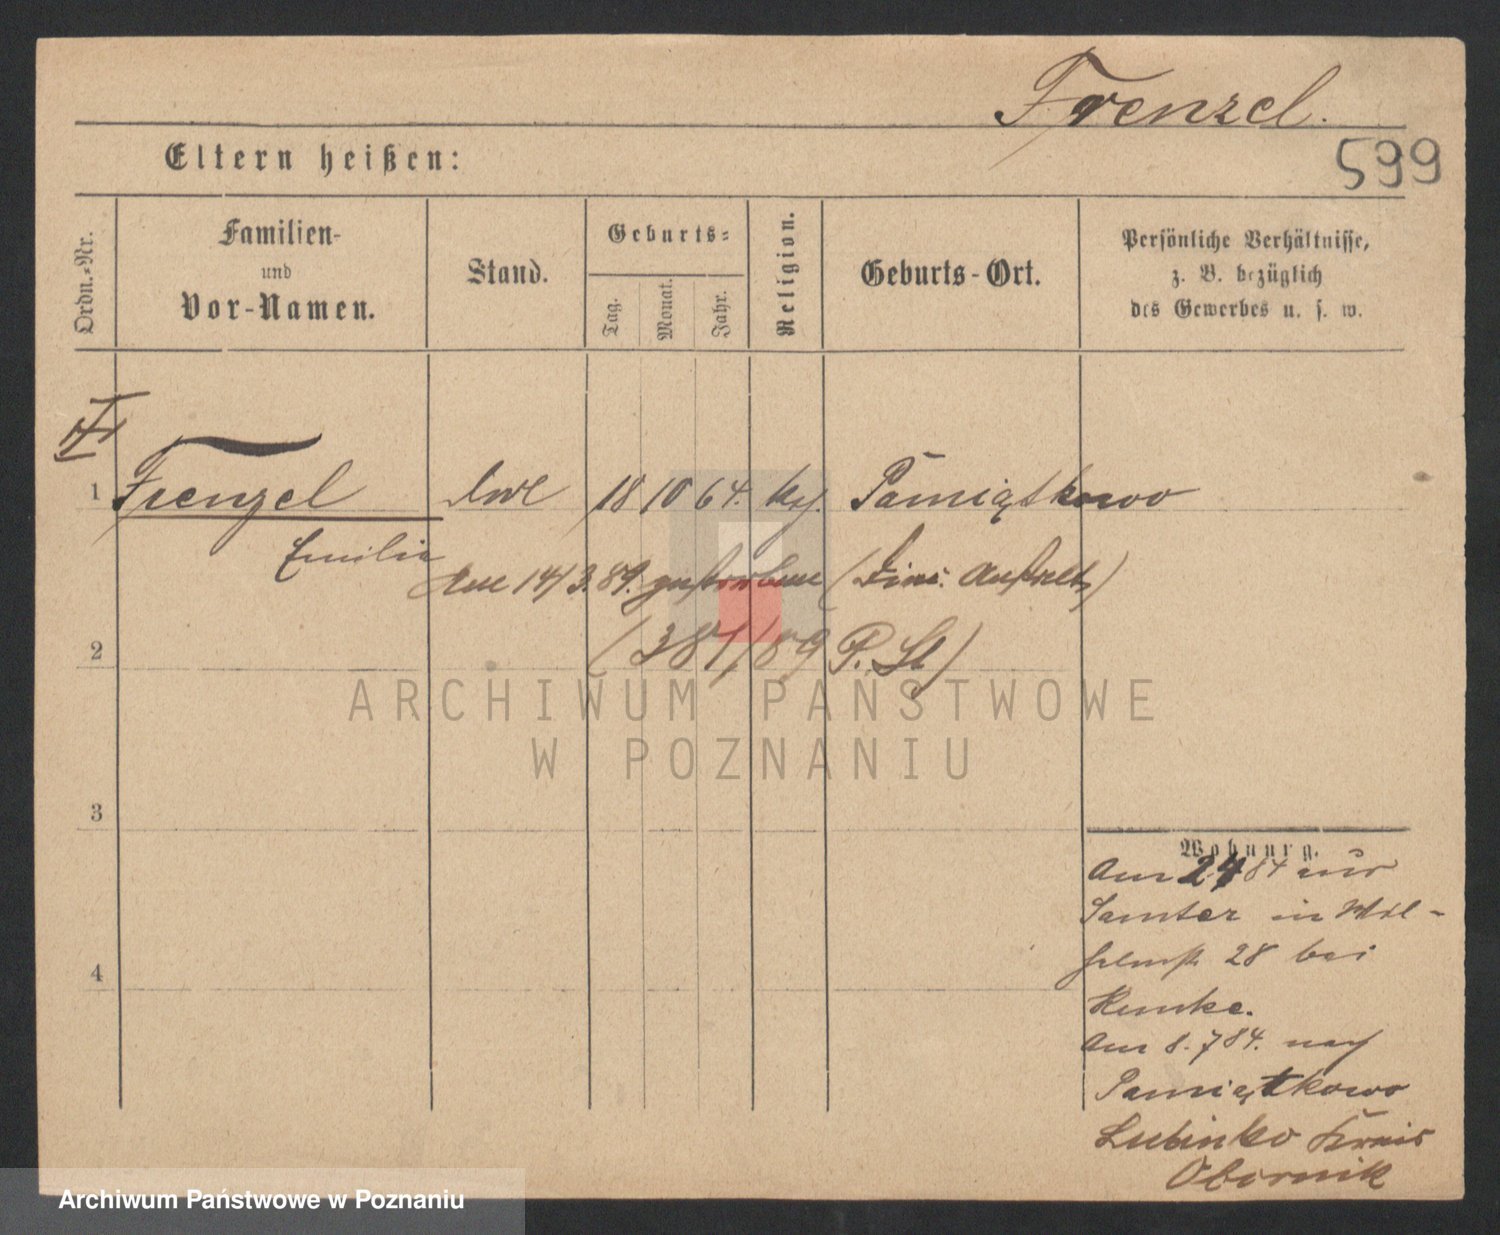 Frenzel.
599
Eltern heißen:
Ordn.=Nr.
Familien-
und
Vor-Namen.
Stand.
Geburts=
Tag.
Monat.
Jahr.
Religion.
Geburts-Ort.
Persönliche Verhältnisse,
z. B. bezüglich
des Gewerbes u. s. w.
1 Frenzel 18 10 64. Pamiątkowo
Emilie
14/3.89. gestorben
2
(381/89 P. St)
ARCHIWUM PAŃSTWOWE
W POZNANIU
3
Wohnung.
Am 84 aus
Samter in Wil-
helmst 28 bei
4
Am 8. 7 84. nach
Pamiątkowo
Kreis
Obornik
Archiwum Państwowe w Poznaniu